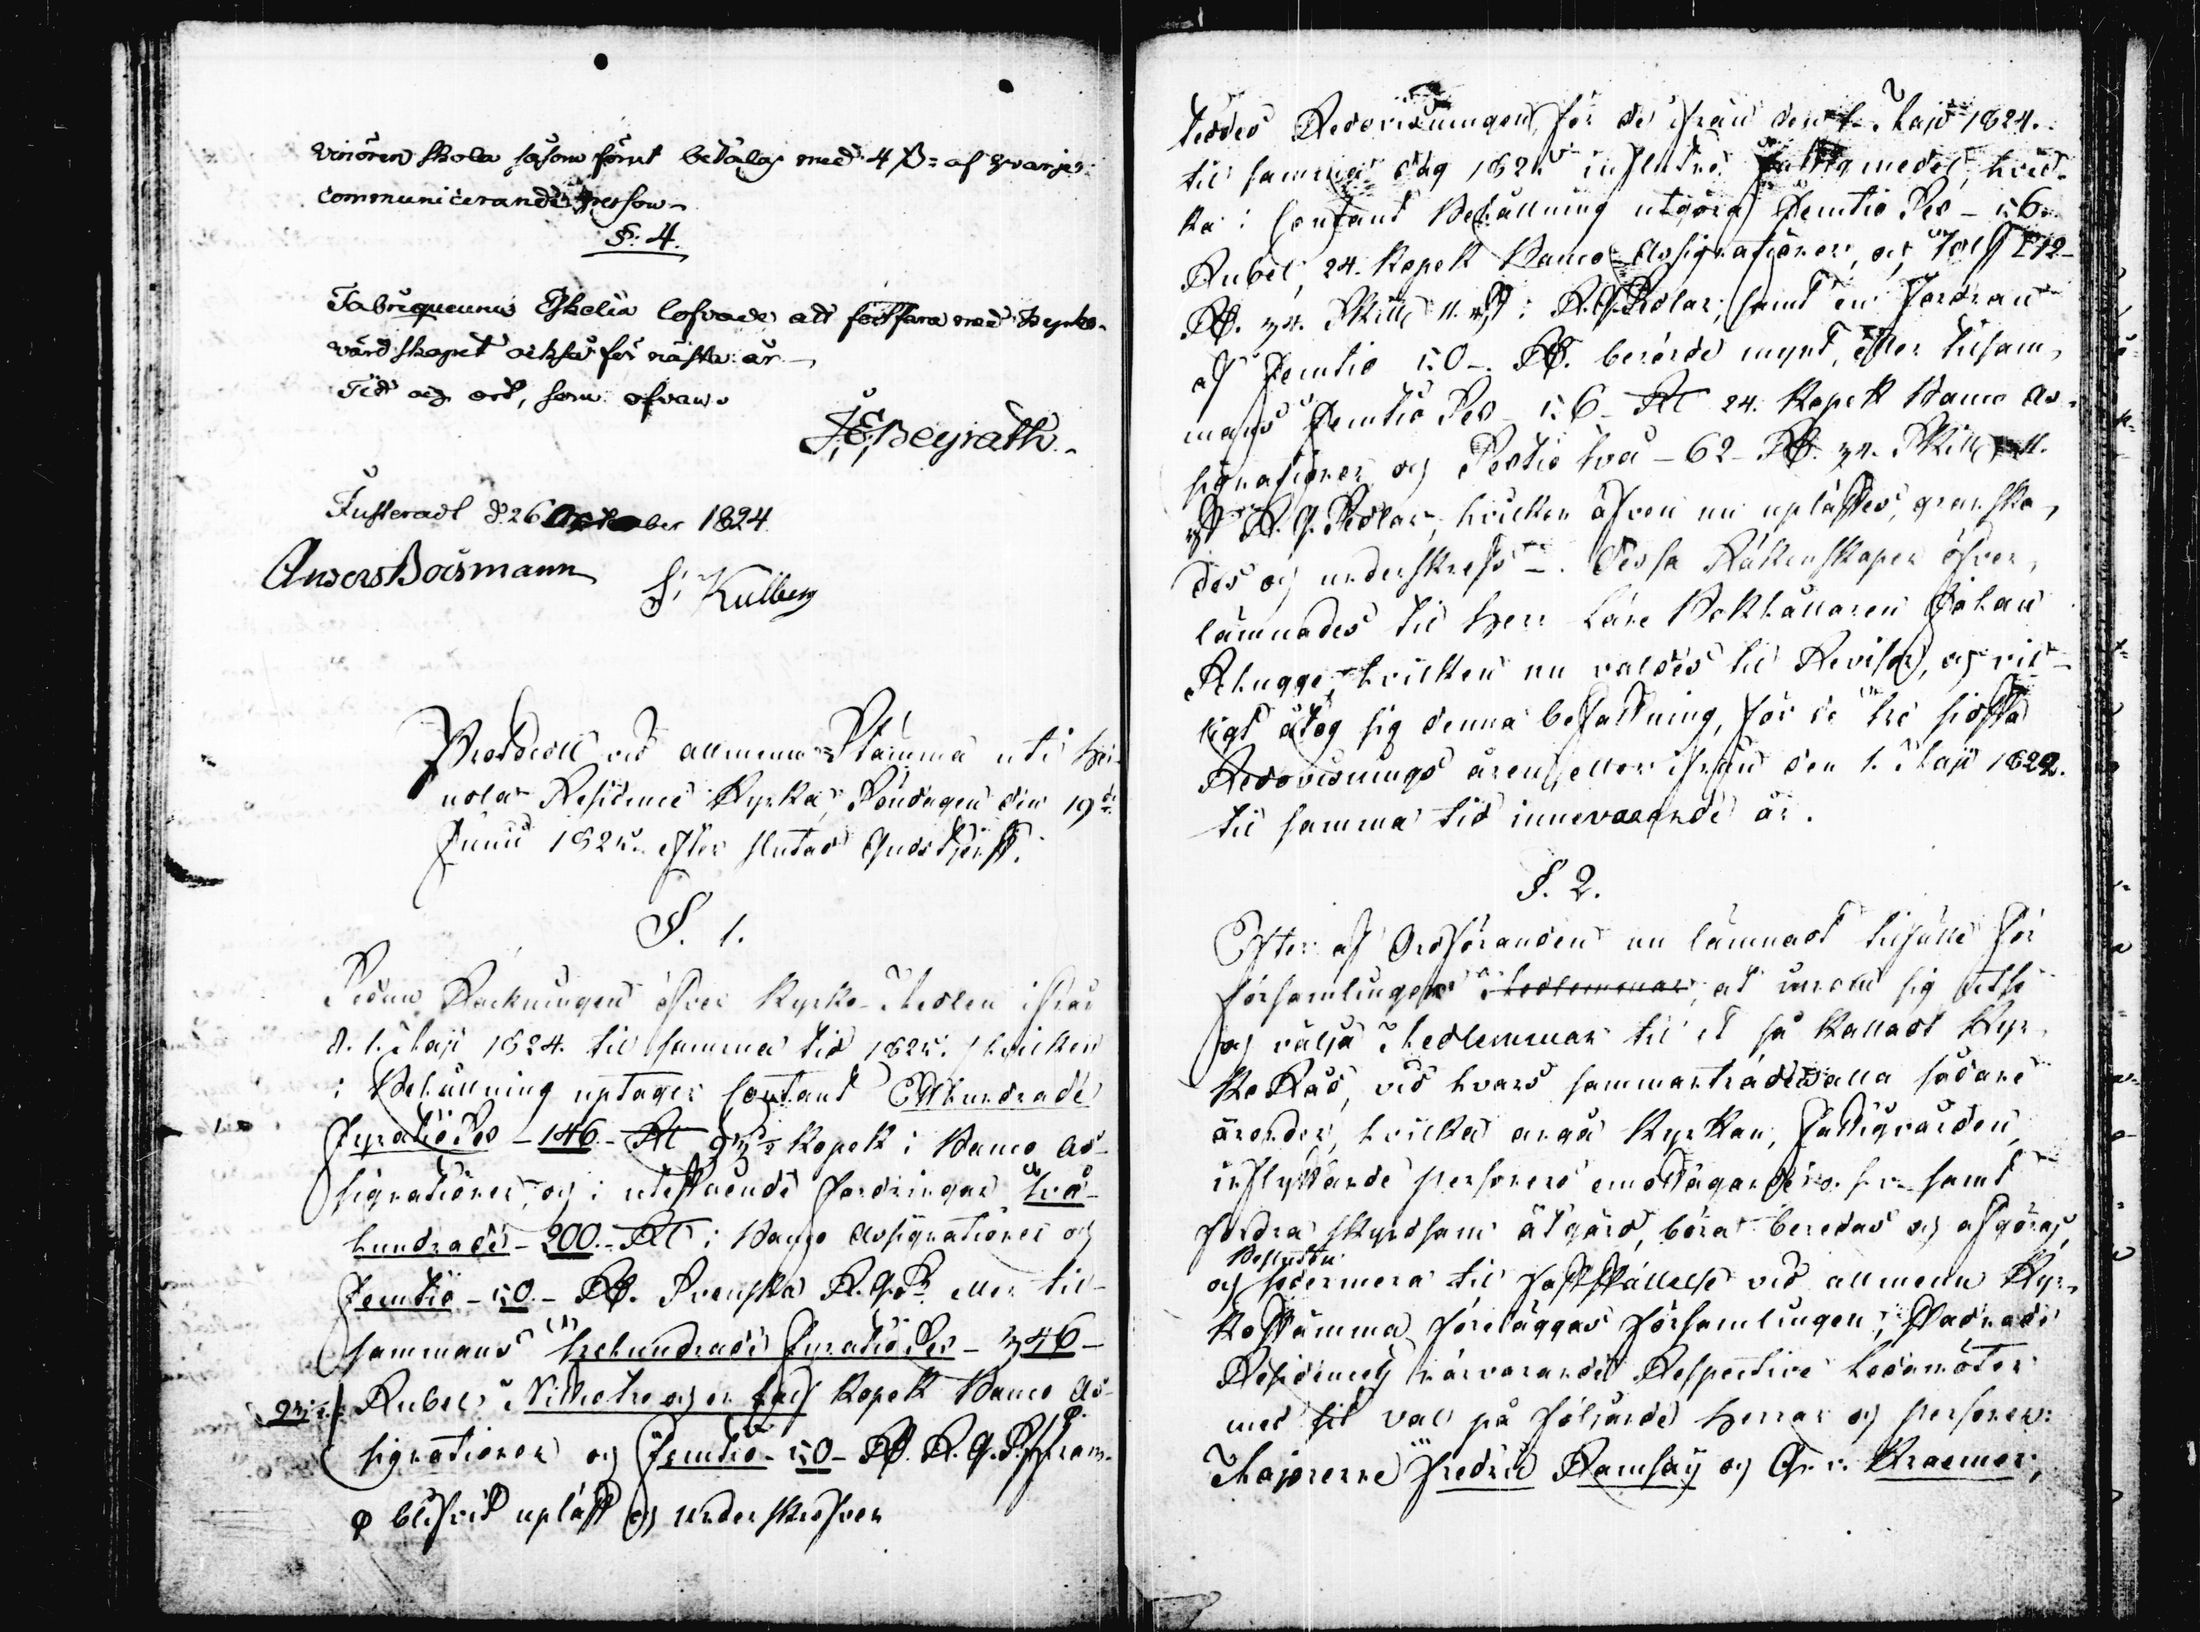 vinören skola såsom förut betalas med 4 β: af hvarje
communicerande person
§: 4.
Fabriqueuren Eskelin lofvade att fortfara med Kyrko-
värdskapet också för nästa år
Tid och ort, som ofvan
J. E. Beyrath
Justeradt d. 26 October 1824
Anders Boismann S. Kullberg
Protocoll vid allmenna Stämma uti Hei-
nola Residence Kyrka, Söndagen den 19de
Junii 1825. efter slutad Gudstjenst.
§. 1.
Sedan Räkningen öfver Kyrko-Medlen ifrån
d. 1. Maji 1824. til samma tid 1825. hvilken
i Behållning uptager contant Etthundrade
Fyratio Sex - 146 - Rl 93½ Kopek i Banco As-
signationer, och i utestående fordringar två-
hundrade - 200. - Rl i Banco Assignationer och
Femtio - 50. - Rd. Svenska R.G.S. eller til-
sammans Trehundrade Fyratio Sex - 346 -
93½ Rubel Nittiotre och en half Kopek Banco As-
signationer och Femtio - 50 - Rd. R.G.S. φ fram-
φ blifvit upläst och underskrefven
teddes Redovisningen för de ifrån den 1. Maji 1824.
til samma dag 1825 influtne Fattigmedel, hvil-
ka i contant Behållning utgöra Femtio Sex - 56
Rubel, 24. Kopek Banco Assignationer, och Tolf - 12 -
Rd. 34. Skill. i R.G.Sedlar, samt en Fordran
af Femtio 50 - Rd. berörde mynt, eller tilsam-
mans Femtio Sex - 56 - Rl 24. Kopek Banco As-
signationer och Sextio två - 62 - Rd. 34. Skill.
R.G.Sedlar, hvilken äfven nu uplästes, granska-
des och underskrefs. Dessa Räkenskaper öfver-
lämnades til Herr Läne Bokhållaren Johan
Rhugge, hvilken nu valdes til Revisor, och vil-
ligt åtog sig denna befattning, för de tre sidsta
Redovisnings åren, eller ifrån den 1. Maji 1822.
til samma tid innevarande år.
§. 2.
Efter af Ordföranden nu lämnadt tilfälle för
församlingen Medlemmar, at inom sig utse
och välja Medlemmar til et så kalladt Kyr-
ko Råd, vid hvars sammanträde alla sådane
ärender, hvilka angå Kyrkan, Fattigvården,
inflyttande personers emottagande s. v. samt
fordra skyndsam åtgärd, böra beredas och afgöras,
Besluten
och sedermera til fastställelse vid allmenn Kyr-
kostämma föreläggas församlingen, stadnade
Residencets närvarande Respective Ledamöter
med sit val på följande Herrar och personer:
Majorerne Fredric Ramsay och G. v. Kraemer,